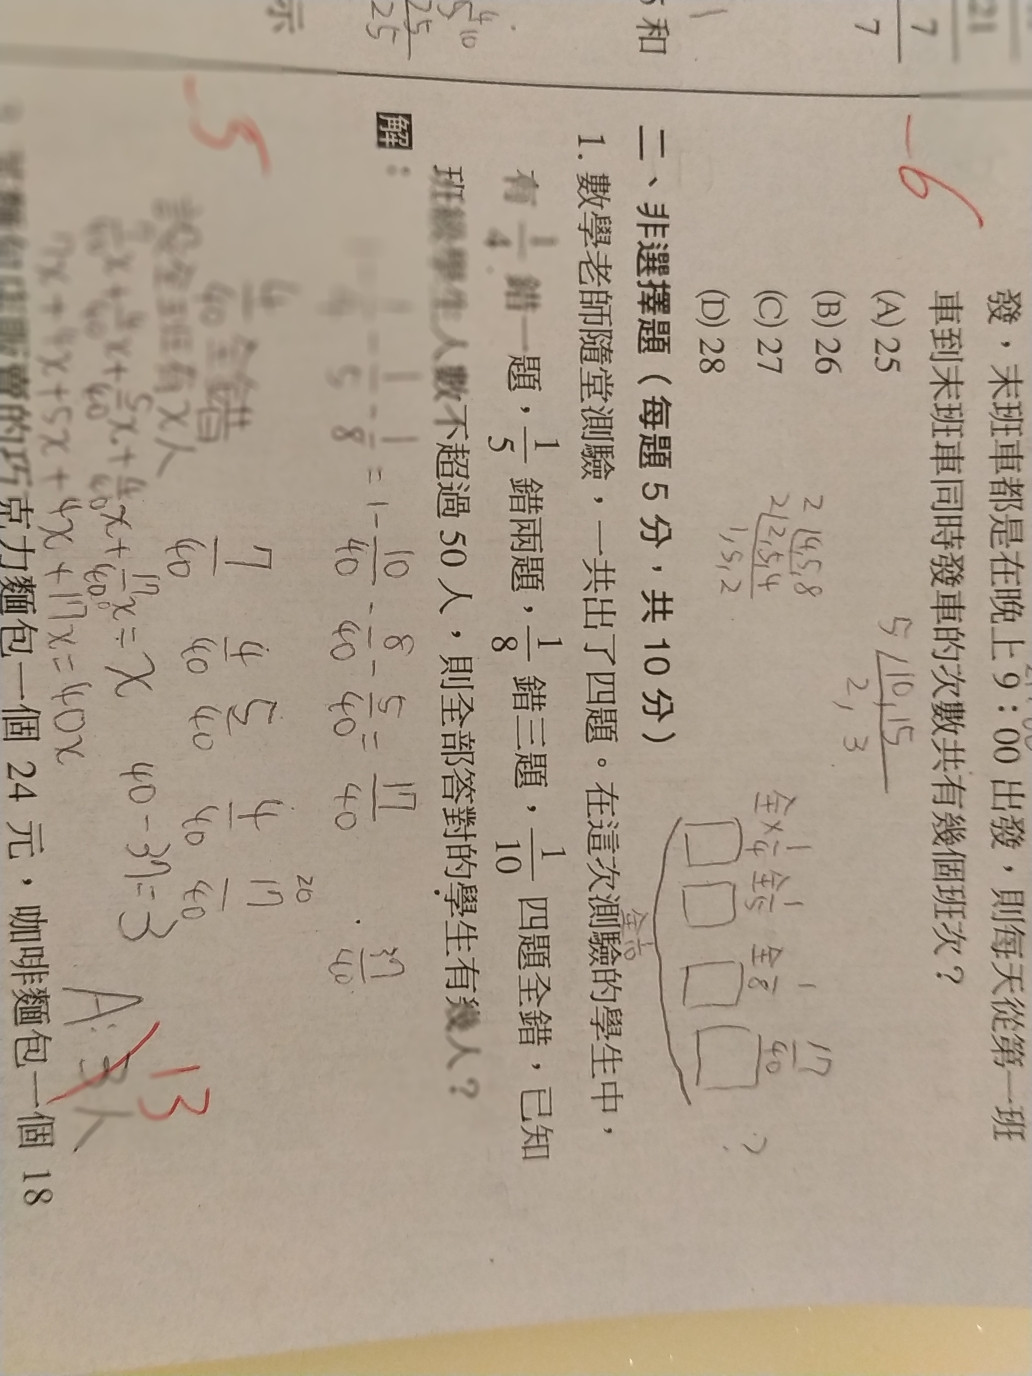 21
7
7
和
發，末班車都是在晚上9：00出發，則每天從第一班
車到末班車同時發車的次數共有幾個班次？
-6
(A) 25
(B) 26
(C) 27
(D) 28
5 10,15
2, 3
2 4,5,8
2 2,5,4
1,5,2
二、非選擇題（每題5分，共10分）
1. 數學老師隨堂測驗，一共出了四題。在這次測驗的學生中，
有 1/4 錯一題，1/5 錯兩題，1/8 錯三題，1/10 四題全錯，已知
班級學生人數不超過50人，則全部答對的學生有幾人？
全×1/4 全1/5 全1/8 17/40 ?
全1/10
解：
-1/5-1/8=1-10/40-8/40-5/40=17/40
37/40
20
4/40 全錯 7/40 4/40 5/40 4/40 17/40
-5
設全班有x人
x+17/40x=x
7x+4x+5x+4x+17x=40x
40-37=3
A:3人
13
克力麵包一個24元，咖啡麵包一個18
示
25
25